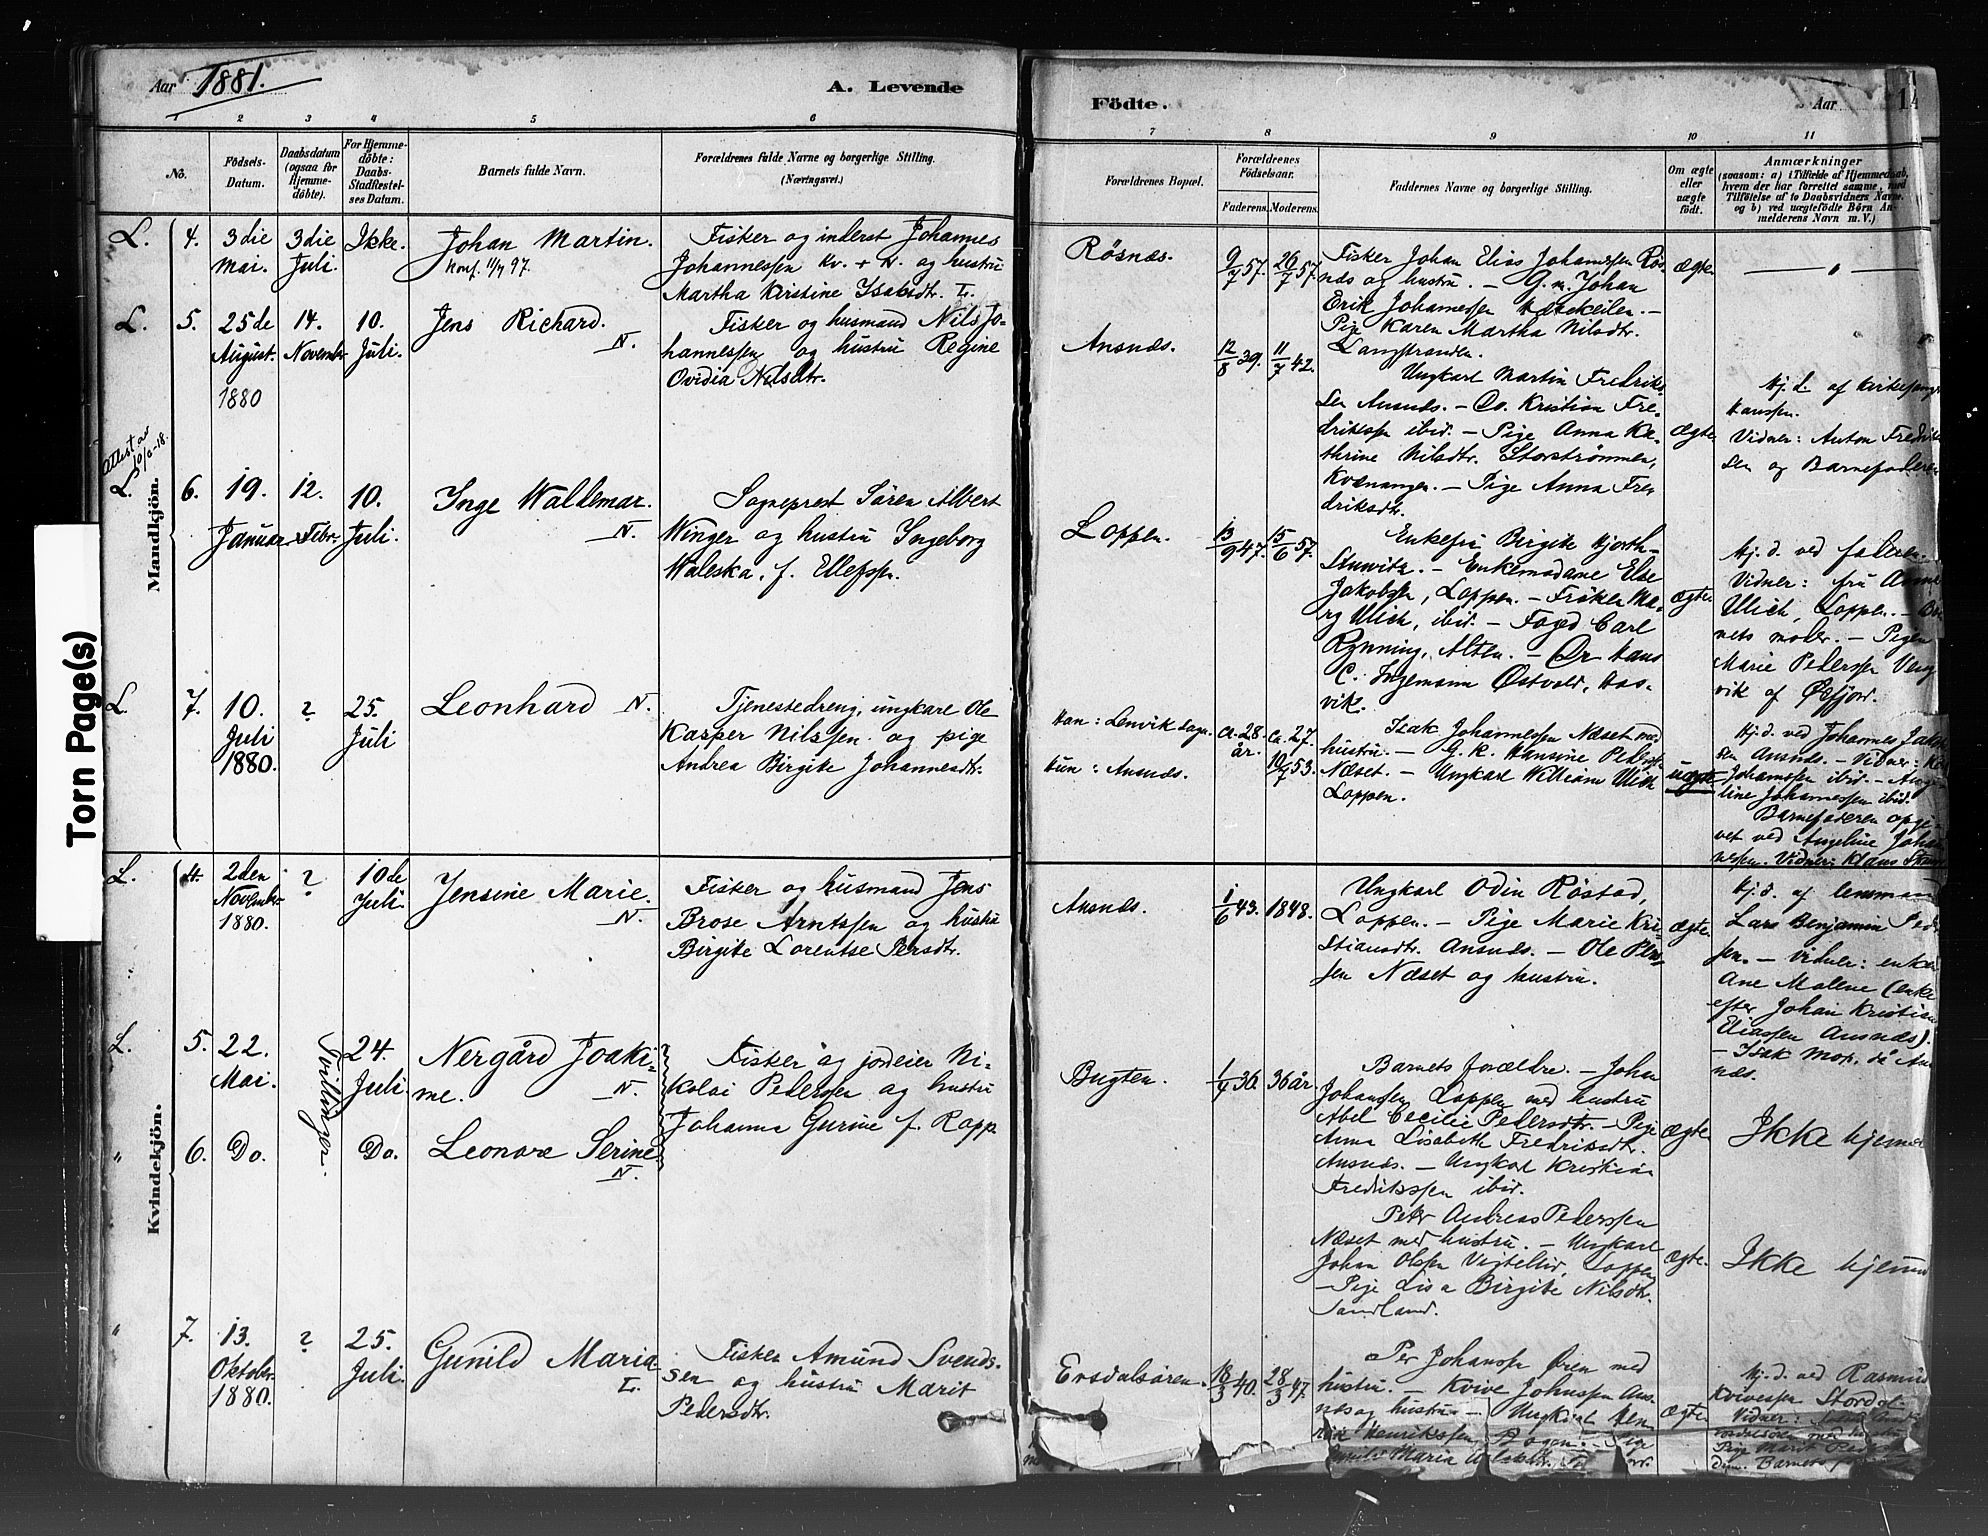 Aar 1881.
A. Levende
Födte.
Aar
14
1 2 3 4 5 6
7 8 9 10 11
No.
Födsels-
Datum.
Daabsdatum
(ogsaa for
Hjemme-
döbte).
For Hjemme-
döbte:
Daabs-
Stadfæstel-
ses Datum.
Barnets fulde Navn.
Forældrenes fulde Navne og borgerlige Stilling.
(Næringsvei.)
Forældrenes Bopæl.
Forældrenes
Födselsaar.
Faderens. Moderens.
Faddernes Navne og borgerlige Stilling.
Om ægte
eller
uægte
födt.
Anmærkninger
(saasom: a) i Tilfælde af Hjemmedaab,
hvem der har forrettet samme, med
Tilföielse af to Daabsvidners Navne.
og b) ved uægtefödte Börn An-
melderens Navn m. V.)
Torn Page(s)
Mandkjön.
L. 4.
3die
Mai.
3die
Juli.
Ikke.
Johan Martin.
Konf. 11/7 97.
Fisker og inderst Johannes
Johannessen Kv. + N. og hustru
Martha Kirstine Isaksdtr. L.
Røsnæs.
9/7 57.
26/7 57.
Fisker Johan Elias Johannessen Røs-
næs og hustru. — G. m. Johan
Erik Johannessen
Pige Karen Martha Nilsdtr.
Langstranden.
ægte
L. 5.
25de
August.
1880
14.
Novembr
10.
Juli.
Jens Richard.
N.
Fisker og husmand Nils Jo-
hannessen og hustru Regine
Ovidia Nilsdtr.
Ansnæs.
12/8 39.
11/7 42.
Ungkarl Martin Fredriks-
sen Ansnæs. — Do. Kristian Fre-
drikssen ibid. — Pige Anna Ka-
thrine Nilsdtr. Storstrømmen,
Kvænangen. — Pige Anna Fre-
driksdtr.
ægte
Hj. d. af kirkesanger
Hanssen.
Vidner: Anton Fredrik-
sen og Barnefaderen
Attest av
10/6-18.
L. 6.
19.
Januar
12.
Febr.
10.
Juli.
Inge Waldemar.
N.
Sogneprest Søren Albert
Winger og hustru Ingeborg
Waleska, f. Ellefsen.
Loppen.
13/9 47.
15/6 57.
Enkefru Birgite Hjorth-
— Enkemadame Else
Jakobsen, Loppen. — Frøken Ma-
ry Ulich, ibid. — Foged Carl
Rynning, Alten. — Dr Hans
C. Ingemann Østvold, Has-
vik.
ægte
Hj. d. ved faderen.
Vidner: fru Anna
Ulich, Loppen. — Bar-
nets moder. — Pigen
Marie Pederssen
vik af Øxfjord.
L. 7.
10.
Juli
1880.
?
25.
Juli
Leonhard N.
Tjenestedreng, ungkarl Ole
Kasper Nilssen og pige
Andrea Birgite Johannesdtr.
Han: Lenvik Sogn.
Hun: Ansnæs.
ca. 28
år.
ca. 27.
10/7 53.
Isak Johannessen Næset m.
hustru. — G. K. Hansine Pedersdtr
Næset. — Ungkarl William Ulich
Loppen.
uægte
Hj. d. ved Johannes Jakob-
sen Ansnæs. — Vidner:
Johannessen ibid. —
line Johannessen ibid.
Barnefaderen opgi-
vet ved Angeline Johan-
nessen. Vidner: Klaus
Kvindekjön.
L. 4.
2den
Novembr
1880.
?
10de
Juli.
Jensine Marie.
N.
Fisker og husmand Jens
Brose Arntssen og hustru
Birgite Lorentse Persdtr.
Ansnæs.
1/6 43.
1848.
Ungkarl Odin Røstad,
Loppen. — Pige Marie Kri-
stiansdtr. Ansnæs. — Ole Peder-
sen Næset og hustru.
ægte
Hj. d. af lensmand
Lars Benjamin Peder-
sen. — Vidner: enken
Ane Malene (enke
efter Johan Kristian
Eliassen Ansnæs).
— Isak
næs.
L. 5.
22.
Mai.
Tvillinger.
24.
Juli.
Nergård Joaki-
me. N.
Fisker og jordeier Ni-
kolai Pederssen og hustru
Johanna Gurine f. Rapp.
Bugten.
1/7 36.
36 år.
Barnets forældre. — Johan
Johansen Loppen med hustru
Abel Cecilie Pedersdtr. — Pige
Anna Lisabeth Fredriksdtr.
Ansnæs. — Ungkarl Kristian
Fredrikssen ibid.
ægte
Ikke hjemme
" 6.
Do.
Do.
Leonore Serine
N.
Peter Andreas Pederssen
Næset med hustru. — Ungkarl
Johan Olsen Loppen
— Pige Lisa Birgite Nilsdtr.
Sandland.
ægte.
Ikke hjemme
" 7.
13.
Oktobr.
1880.
?
25.
Juli.
Gunild Maria
L.
Fisker Amund Svends-
sen og hustru Marit
Pedersdtr.
Ersdalsøren.
18/3 40.
28/3 47
Per Johansen Øren med
hustru. — Kvive Johnssen Ans-
næs og hustru — Ungkarl Hen-
rik Henrikssen Bogen. — Pige
Maria
ægte
Hj. d. ved Rasmus
Kvivessen Stordal
Vidner:
Pige Marit
Barnets